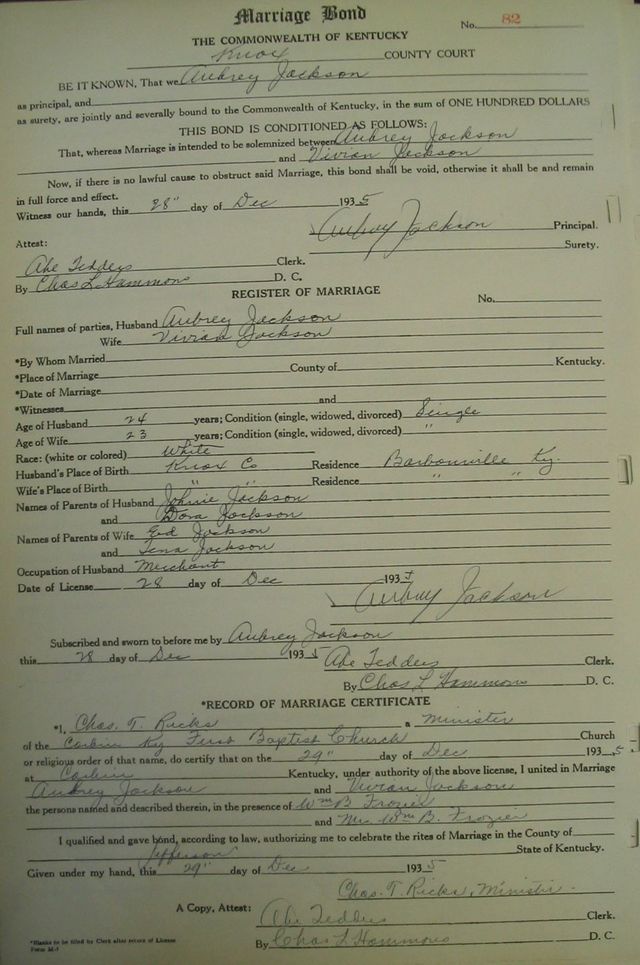 Marriage Bond
No. 82
THE COMMONWEALTH OF KENTUCKY
Knox COUNTY COURT
BE IT KNOWN, That we Aubrey Jackson
as principal, and
as surety, are jointly and severally bound to the Commonwealth of Kentucky, in the sum of ONE HUNDRED DOLLARS
THIS BOND IS CONDITIONED AS FOLLOWS:
That, whereas Marriage is intended to be solemnized between Aubrey Jackson
and Vivian Jackson
Now, if there is no lawful cause to obstruct said Marriage, this bond shall be void, otherwise it shall be and remain
in full force and effect.
Witness our hands, this 28" day of Dec 1935
Aubrey Jackson Principal.
Surety.
Attest:
Abe Tedders Clerk.
By Chas L Hammons D. C.
REGISTER OF MARRIAGE
No.
Full names of parties, Husband Aubrey Jackson
Wife Vivian Jackson
*By Whom Married
*Place of Marriage County of Kentucky.
*Date of Marriage
*Witnesses and
Age of Husband 24 years; Condition (single, widowed, divorced) Single
Age of Wife 23 years; Condition (single, widowed, divorced) "
Race: (white or colored) White
Husband's Place of Birth Knox Co Residence Barbourville Ky.
Wife's Place of Birth " " Residence " "
Names of Parents of Husband Johnie Jackson
and Dora Jackson
Names of Parents of Wife Ed Jackson
and Lena Jackson
Occupation of Husband Merchant
Date of License 28 day of Dec 1935
Aubrey Jackson
Subscribed and sworn to before me by Aubrey Jackson
this 28 day of Dec 1935 Abe Tedders Clerk.
By Chas L Hammons D. C.
*RECORD OF MARRIAGE CERTIFICATE
*I, Chas. T. Ricks a Minister
of the Corbin Ky First Baptist Church Church
or religious order of that name, do certify that on the 29" day of Dec 1935.
at Corbin Kentucky, under authority of the above license, I united in Marriage
Aubrey Jackson and Vivian Jackson
the persons named and described therein, in the presence of Wm B Frozier
and Mrs Wm B. Frozier
I qualified and gave bond, according to law, authorizing me to celebrate the rites of Marriage in the County of
Jefferson State of Kentucky.
Given under my hand, this 29" day of Dec 1935
Chas. T. Ricks, Minister.
A Copy, Attest: Abe Tedders Clerk.
By Chas L Hammons D. C.
*Blanks to be filled by Clerk after return of License
Form M-1